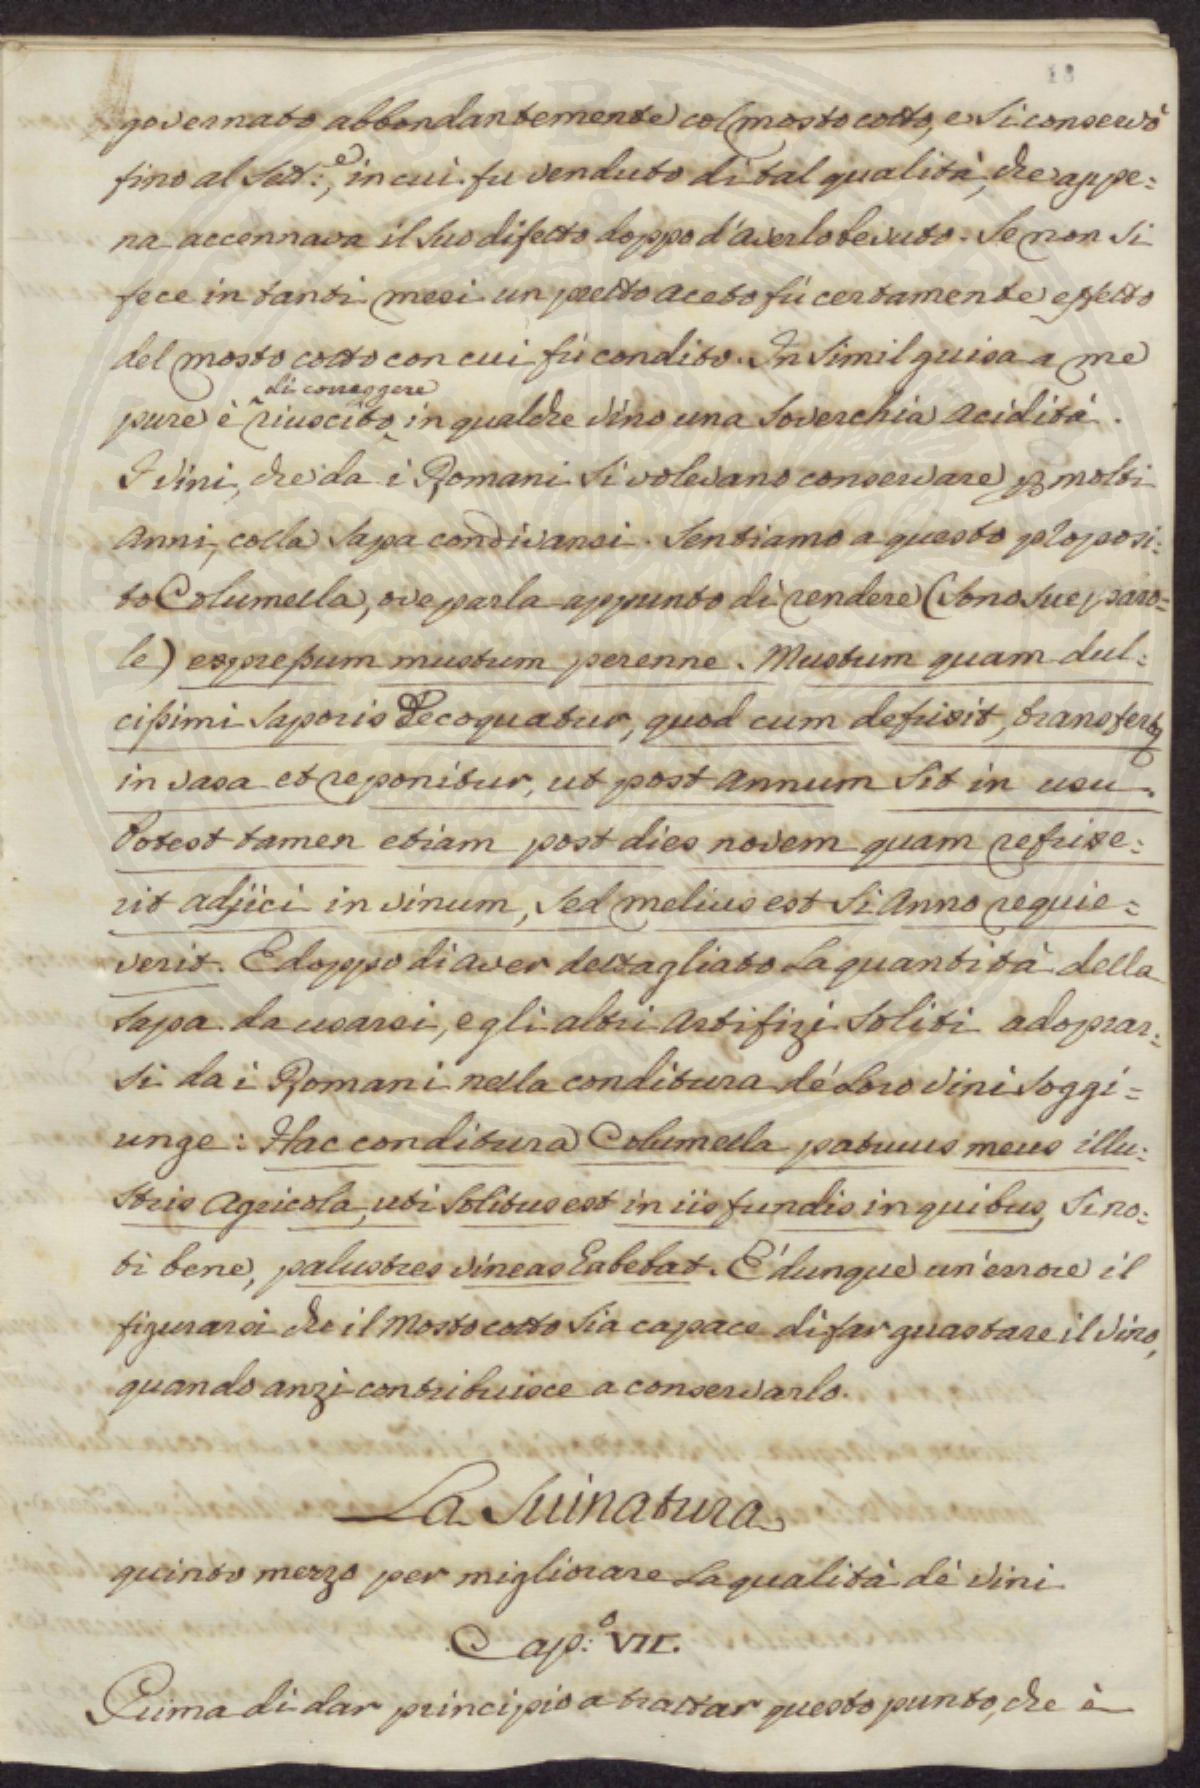 18
governato abbondantemente col mosto cotto, e si conservò
fino al Sett:e, in cui fu venduto di tal qualità, che appe=
na accennava il suo difetto doppo d'averlo bevuto. Se non si
fece in tanti mesi un pretto aceto fù certamente effetto
del mosto cotto con cui fù condito. In simil guisa a me
pure è riuscito di correggere in qualche vino una soverchia acidità.
I vini, che da i Romani si volevano conservare p molti
Anni, colla sapa condivansi. Sentiamo a questo proposi=
to Columella, ove parla appunto di rendere (sono sue paro=
le) expreßum mustum perenne. Mustum quam dul=
cißimi saporis decoquatur, quod cum defrixit, transfertq
in vasa et reponitur, ut post annum sit in usu.
Potest tamen etiam post dies novem quam refrixe=
rit adjici in vinum, sed melius est si Anno requie=
verit. E doppo di aver dettagliato la quantità della
sapa da usarsi, e gli altri Artifizi soliti adoprar=
si da i Romani nella conditura dè loro vini soggi=
unge: Hac conditura Columella patruus meus illu=
stris Agricola uti solitus est in iis fundis in quibus, si no=
ti bene, palustres vineas habebat. È dunque un'errore il
figurarsi che il Mosto cotto sia capace di far guastare il vino,
quando anzi contribuisce a conservarlo.
La Suinatura
quinto mezzo per migliorare la qualità dè vini
Cap:o VII.
Prima di dar principio a trattar questo punto, che è